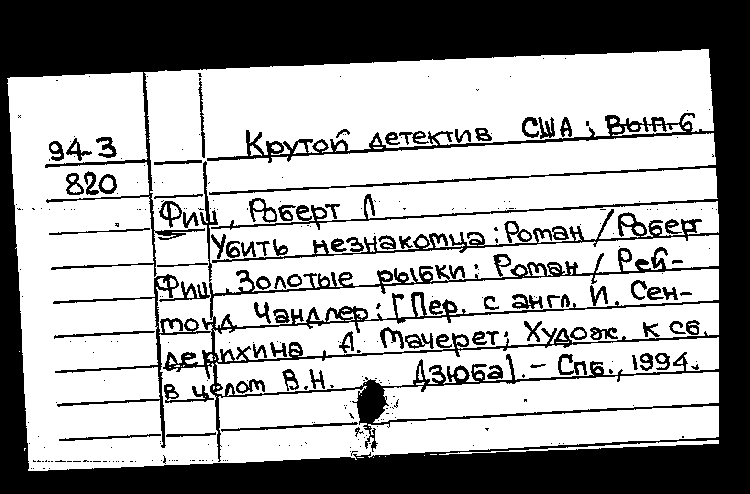 94-3 Крутой детектив США; Вып.6.
820
Фиш, Роберт Л
Убить незнакомца: Роман / Роберт
Фиш. Золотые рыбки: Роман / Рей-
монд Чандлер; [Пер. с англ. И. Сен-
дерихина, А. Мачерет; Худож. к сб.
в целом В.Н. Дзюба]. - Спб., 1994.